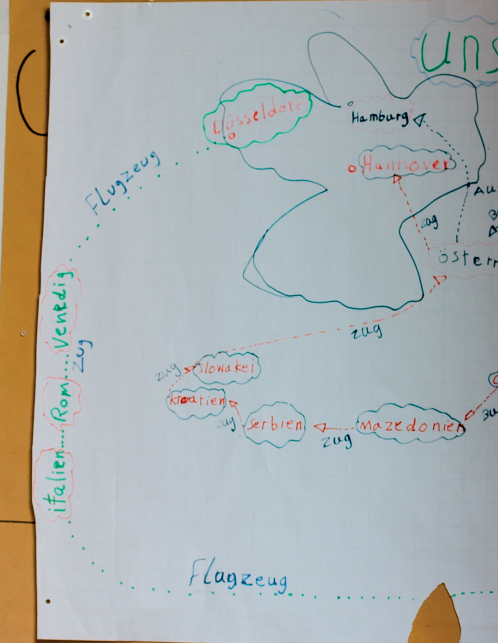 Uns
Düsseldorf
Hamburg
Hannover
Flugzeug
Au
zug
Österr
Venedig
zug
Rom
italien
zug
zug
Slowakei
kroatien
zug
Serbien
zug
Mazedonien
Flugzeug